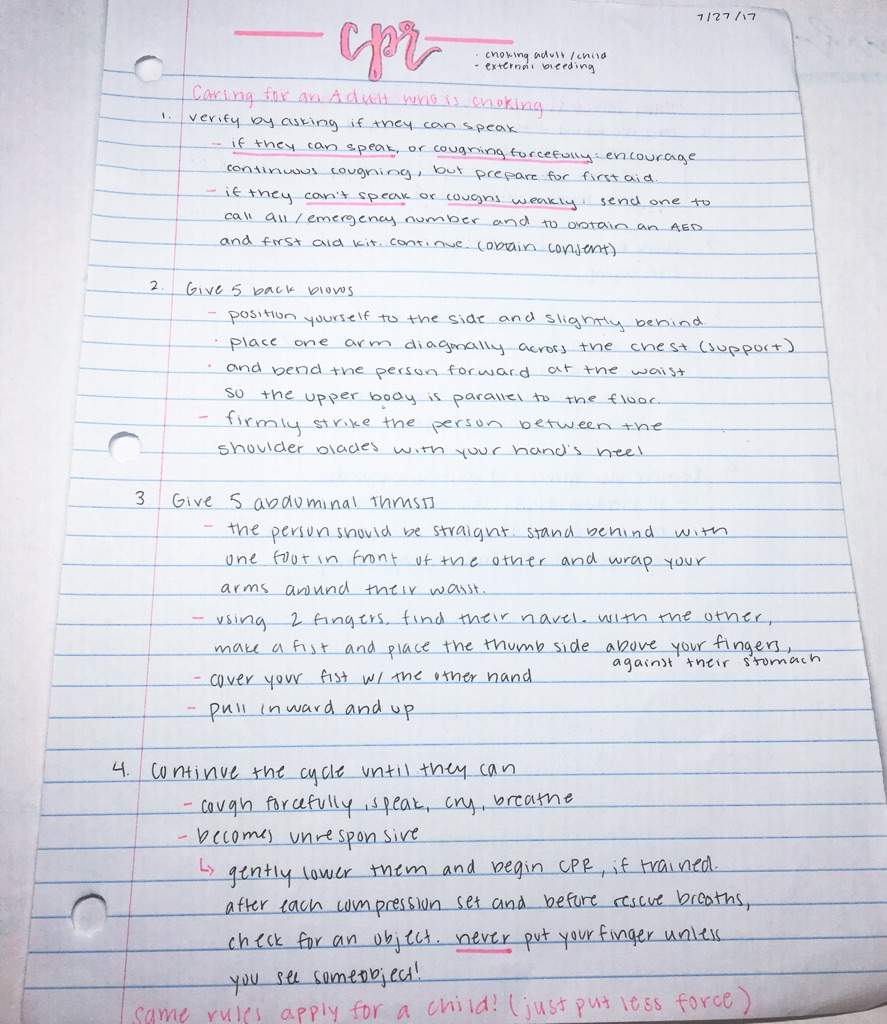 7/27/17
cpr
· choking adult/child
- external bleeding
Caring for an Adult who is choking
1. verify by asking if they can speak
- if they can speak, or coughing forcefully: encourage
continuous coughing, but prepare for first aid.
- if they can't speak or coughs weakly: send one to
call 911/emergency number and to obtain an AED
and first aid kit. continue. (obtain consent)
2. Give 5 back blows
- position yourself to the side and slightly behind
· place one arm diagonally across the chest (support)
· and bend the person forward at the waist
so the upper body is parallel to the floor.
- firmly strike the person between the
shoulder blades with your hand's heel
3 Give 5 abdominal thrusts
- the person should be straight. stand behind with
one foot in front of the other and wrap your
arms around their waist.
- using 2 fingers, find their navel. with the other,
make a fist and place the thumb side above your fingers,
against their stomach
- cover your fist w/ the other hand
- pull inward and up
4. continue the cycle until they can
- cough forcefully, speak, cry, breathe
- becomes unresponsive
↳ gently lower them and begin CPR, if trained.
after each compression set and before rescue breaths,
check for an object. never put your finger unless
you see some object!
same rules apply for a child! (just put less force)